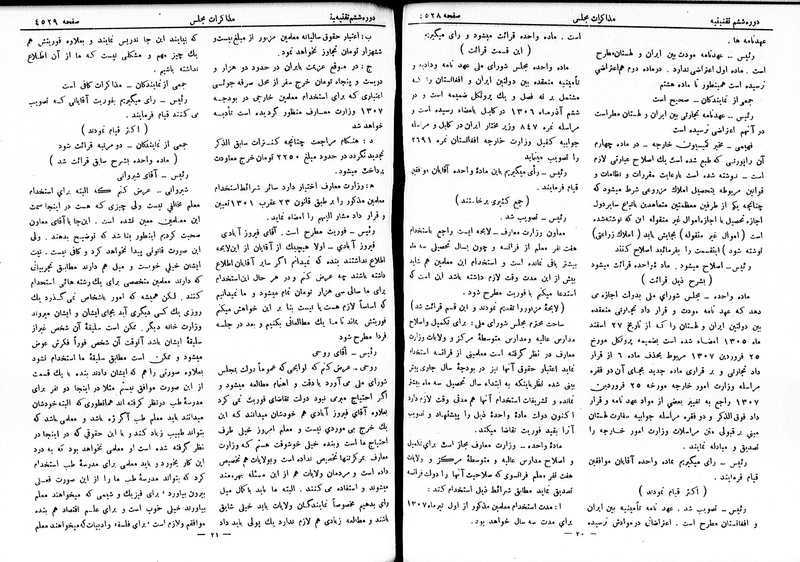 دوره ششم تقنینیه
مذاکرات مجلس
صفحه ۴۵۲۸
عهدنامه ها .
رئیس ــ عهدنامه مودت بین ایران و لهستان مطرح
است . ماده اول اعتراضی ندارد . در ماده دوم هم اعتراضی
نرسیده است همینطور تا ماده هشتم
جمعی از نمایندگان ــ صحیح است
رئیس ــ عهدنامه تجارتی بین ایران و لهستان مطرح است
در آنهم اعتراضی نرسیده است
فهیمی ــ مخبر کمیسیون خارجه ــ در ماده چهارم
آن راپورتی که طبع شده است یک اصلاح عبارتی لازم
است ــ نوشته شده است بارعایت مقررات و نظامات و
قوانین مربوطه بتحصیل املاک مزروعی شرط میشود که
چنانچه یکی از طرفین معظمتین متعاهدین باتباع سایر دول
اجازه تحصیل یا اجاره اموال غیر منقوله این که نوشته شده
است ( اموال غیر منقوله ) بجایش باید ( املاک زراعتی )
نوشته شود ) اینقسمت را بفرمائید اصلاح کنند
رئیس ــ اصلاح میشود . ماده واحده قرائت میشود
( بشرح ذیل قرائت )
ماده واحده ــ مجلس شورای ملی بدولت اجازه می
دهد که عهد نامه مودت و قرار داد تجارتی منعقده
بین دولتین ایران و لهستان را که از تاریخ ۲۲ اسفند
ماه ۱۳۰۵ امضاء شده است بضمیمه پروتکل مورخ
۲۵ فروردین ۱۳۰۷ مربوط بحذف ماده ۶ از قرار
داد تجارتی و برقراری ماده جدید بجای آن دو فقره
مراسله وزارت امور خارجه مورخه ۲۵ فروردین
۱۳۰۷ راجع به تغییر بعضی از مواد عهد نامه و قرار
داد فوق الذکر و دو فقره مراسله جوابیه سفارت لهستان
مبنی بر قبولی متن مراسلات وزارت امور خارجه را
تصدیق و مبادله نمایند .
رئیس ــ رای میگیریم بماده واحده آقایان موافقین
قیام فرمایند .
( اکثر قیام نمودند )
رئیس ــ تصویب شد . عهد نامه تأمینیه بین ایران
و افغانستان مطرح است . اعتراضاتی در موادش نرسیده
است . ماده واحده قرائت میشود و رای میگیریم
( این قسم قرائت )
ماده واحده مجلس شورای ملی عهد نامه ودادیه و
تأمینیه منعقده بین دولتین ایران و افغانستان را که
مشتمل بر نه فصل و یک پروتکل ضمیمه است و در
ششم آذر ماه ۱۳۰۶ در کابل بامضاء رسیده است و
مراسله نمره ۸۴۷ وزیر مختار ایران در کابل و مراسله
جوابیه کفیل وزارت خارجه افغانستان نمره ۲۶۹۱
را تصویب مینماید
رئیس ــ رأی میگیریم باین مادهٔ واحده آقایان موافقین
قیام فرمایند .
( جمع کثیری برخاستند )
رئیس ــ تصویب شد .
معاون وزارت معارف ــ لایحه ایست راجع باستخدام
هفت نفر معلم از فرانسه و چون بسال تحصیلی سه ماه
بیشتر باقی نمانده است و استخدام این معلمین هم شاید
بیش از این مدت وقت لازم داشته باشد این است که
استدعا میکنم با فوریت مطرح شود .
( لایحهٔ مزبور را تقدیم نمودند و این قسم قرائت شد )
ساحت محترم مجلس شورای ملی : برای تکمیل و اصلاح
مدارس عالیه و مدارس متوسطهٔ مرکز و ولایات وزارت
معارف در نظر گرفته است معلمینی از فرانسه استخدام
نماید اعتبار حقوق آنها نیز در بودجهٔ سال جاری پیش
بینی شده نظر باینکه به ابتداء سال تحصیلی سه ماه بیشتر
نمانده و تشریفات استخدام آنها هم مدتی وقت لازم دارد
اکنون دولت مادهٔ واحدهٔ ذیل را پیشنهاد و تصویب
آنرا بقید فوریت تقاضا میکند.
مادهٔ واحده ــ وزارت معارف مجاز است برای تکمیل
و اصلاح مدارس عالیه و متوسطهٔ مرکز و ولایات
هفت نفر معلم فرانسوی که صلاحیت آنها را دولت فرانسه
تصدیق نماید مطابق شرائط ذیل استخدام کند :
ا : مدت استخدام معلمین مذکور از اول تیرماه ۱۳۰۷
برای مدت سه سال خواهد بود.
ــ ۲۰ ــ
دوره ششم تقنینیه
مذاکرات مجلس
صفحه ۴۵۲۹
ب : اعتبار حقوق سالیانه معلمین مزبور از مبلغ بیست و
ششهزار تومان تجاوز نخواهد نمود.
ج : در موقع عزیمت بایران در حدود دو هزار و
دویست و پنجاه تومان خرج سفر از محل صرفه جوئی
اعتباری که برای استخدام معلمین خارجی در بودجه
۱۳۰۷ وزارت معارف منظور گردیده است تأدیه
خواهد شد
د : هنگام مراجعت چنانچه کنترات سابق الذکر
تجدید نگردد در حدود مبلغ ۲۲۵۰ تومان خرج معاودت
پرداخت میشود.
ه : وزارت معارف اختیار دارد سائر شرائط استخدام
معلمین مذکور را بر طبق قانون ۲۳ عقرب ۱۳۰۱ تعیین
و قرار داد مشار الیهم را امضاء نماید.
رئیس ــ فوریت مطرح است . آقای فیروز آبادی
فیروز آبادی ــ اولا هیچیک از آقایان از این لایحه
اطلاع نداشتند بنده که نمیدانم اگر سایر آقایان اطلاع
داشته باشند چه عرض کنم و در هر حال این استخدام
برای ما سالی سی هزار تومان تمام میشود و ما نمیدانیم
که اساسا لازم هست یا نیست بنا بر این خواهش میکنم
فوریتش بماند تا ما یک مطالعاتی بکنیم و بعد در جلسه
فردا مطرح شود
رئیس ــ آقای روحی
روحی ــ عرض کنم که لوایحی که عموماً دولت بمجلس
شورای ملی می آورد با دقت و اهتمام مطالعه میشود و
اگر احتیاج مبرمی نبود دولت تقاضای فوریت نمی کرد
بعلاوه آقای فیروز آبادی هم خودشان میدانند که این
یک خرج بی موردی نیست و معلم امروز خیلی طرف
احتیاج ما است و بنده خیلی خوشوقت هستم که وزارت
معارف بمرکز تنها تخصیص نداده است و بولایات هم تخصیص
داده است و مردمان ولایات هم از این مسئله بهره مند
میشوند و استفاده می کنند . البته ما باید با کمال میل
رای بدهیم مخصوصاً نمایندگان ولایات باید خیلی شایق
باشند و مطالعه زیادی هم لازم ندارد یک پولی باید داد
که بیایند این جا تدریس نمایند و بعلاوه فوریتش هم
یک چیز مهم و مشکلی نیست که ما از آن اطلاع
نداشته باشیم .
جمعی از نمایندگان ــ مذاکرات کافی است
رئیس ــ رای میگیریم بفوریت آقایانی که تصویب
می کنند قیام فرمایند .
( اکثر قیام نمودند )
رئیس ــ تصویب شد .
( ماده واحده بشرح سابق قرائت شد )
رئیس ــ آقای شیروانی
شیروانی ــ عرض کنم که البته برای استخدام
معلم مخالفی نیست ولی چیزی که هست در اینجا سمت
این معلمین معین نشده است . این‌جا با آقای معاون
صحبت کردیم اینطور بنا شد که توضیح بدهند . ولی
این صورت قانونی پیدا نخواهد کرد و کافی نیست . نیت
ایشان خیلی خوب است و میل هم دارند مطابق تجربیاتی
که دارند معلمین متخصصی برای یک رشته هائی استخدام
کنند . لکن همیشه که امور باشخاص نمی گذرد یک
روزی یک کسی دیگری آید بجای ایشان و ایشان میروند
وزارت خانه دیگر . ممکن است سلیقهٔ آن شخص غیر از
سلیقهٔ ایشان باشد آنوقت آن شخص فوراً فکرش عوض
میشود و ممکن است مطابق سلیقهٔ ما استخدام نشود
بعلاوه صورتی را هم که ایشان دادند بنده با یک قسمت
از این صورت موافق نیستم مثلا در اینجا دو نفر برای
مدرسهٔ طب در نظر گرفته اند همانطوری که البته خودشان
میدانند باید معلم طب آگرژه باشد و معلمی باشد که
بتواند طبیب زیاد کند و با این حقوقی که در اینجا در
نظر گرفته شده است او معلمی نخواهد بود که به درد
این کار بخورد و باید معلمی برای مدرسهٔ طب استخدام
کرد که بتواند مدرسهٔ طب ما را از این صورت فعلی
بیرون بیاورد . برای فیزیک و شیمی که میخواهند معلم
بیاورند خیلی خوب است و برای علم اقتصاد هم بنده
موافقم ولازم است ، برای فلسفه و ادبیات که میخواهند معلم
ــ ۲۱ ــ